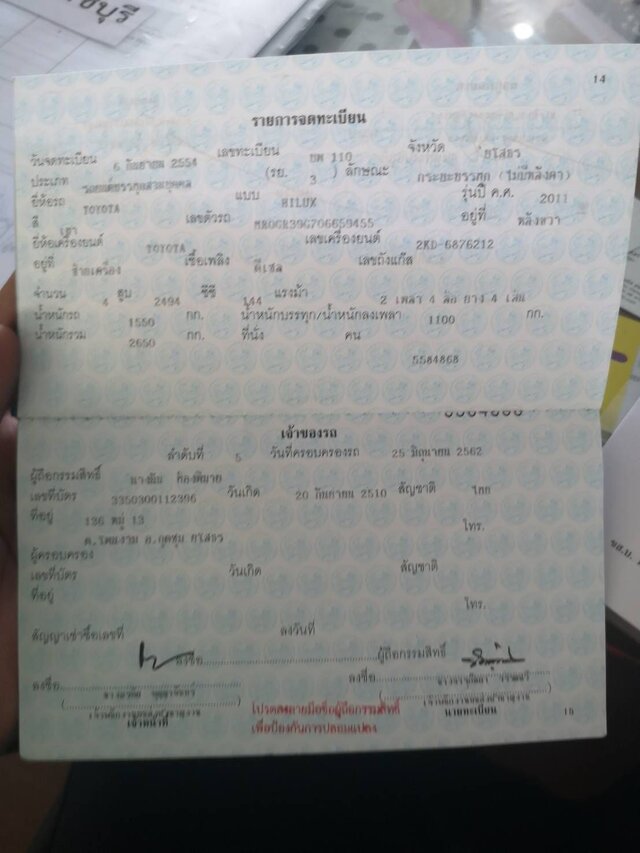 บุรี
14
รายการจดทะเบียน
วันจดทะเบียน 6 กันยายน 2554 เลขทะเบียน บพ 110 จังหวัด ยโสธร
ประเภท รถยนต์บรรทุกส่วนบุคคล (รย. 3 ) ลักษณะ กระบะบรรทุก (ไม่มีหลังคา)
ยี่ห้อรถ TOYOTA แบบ HILUX รุ่นปี ค.ศ. 2011
สี เทา เลขตัวรถ MR0GR39G706659455 อยู่ที่ หลังขวา
ยี่ห้อเครื่องยนต์ TOYOTA เลขเครื่องยนต์ 2KD 6876212
อยู่ที่ ซ้ายเครื่อง เชื้อเพลิง ดีเซล เลขถังแก๊ส
จำนวน 4 สูบ 2494 ซีซี 144 แรงม้า 2 เพลา 4 ล้อ ยาง 4 เส้น
น้ำหนักรถ 1550 กก. น้ำหนักบรรทุก/น้ำหนักลงเพลา 1100 กก.
น้ำหนักรวม 2650 กก. ที่นั่ง คน
5584868
เจ้าของรถ
ลำดับที่ 5 วันที่ครอบครองรถ 25 มิถุนายน 2562
ผู้ถือกรรมสิทธิ์
เลขที่บัตร 3350300112396 วันเกิด 20 กันยายน 2510 สัญชาติ ไทย
ที่อยู่ 136 หมู่ 13 โทร.
ต.โพนงาม อ.กุดชุม ยโสธร
ผู้ครอบครอง
เลขที่บัตร วันเกิด สัญชาติ
ที่อยู่
โทร.
สัญญาเช่าซื้อเลขที่ ลงวันที่
ลงชื่อ ผู้ถือกรรมสิทธิ์
ลงชื่อ ลงชื่อ
เจ้าหน้าที่ นายทะเบียน
โปรดสลายมือชื่อผู้ถือกรรมสิทธิ์
เพื่อป้องกันการปลอมแปลง